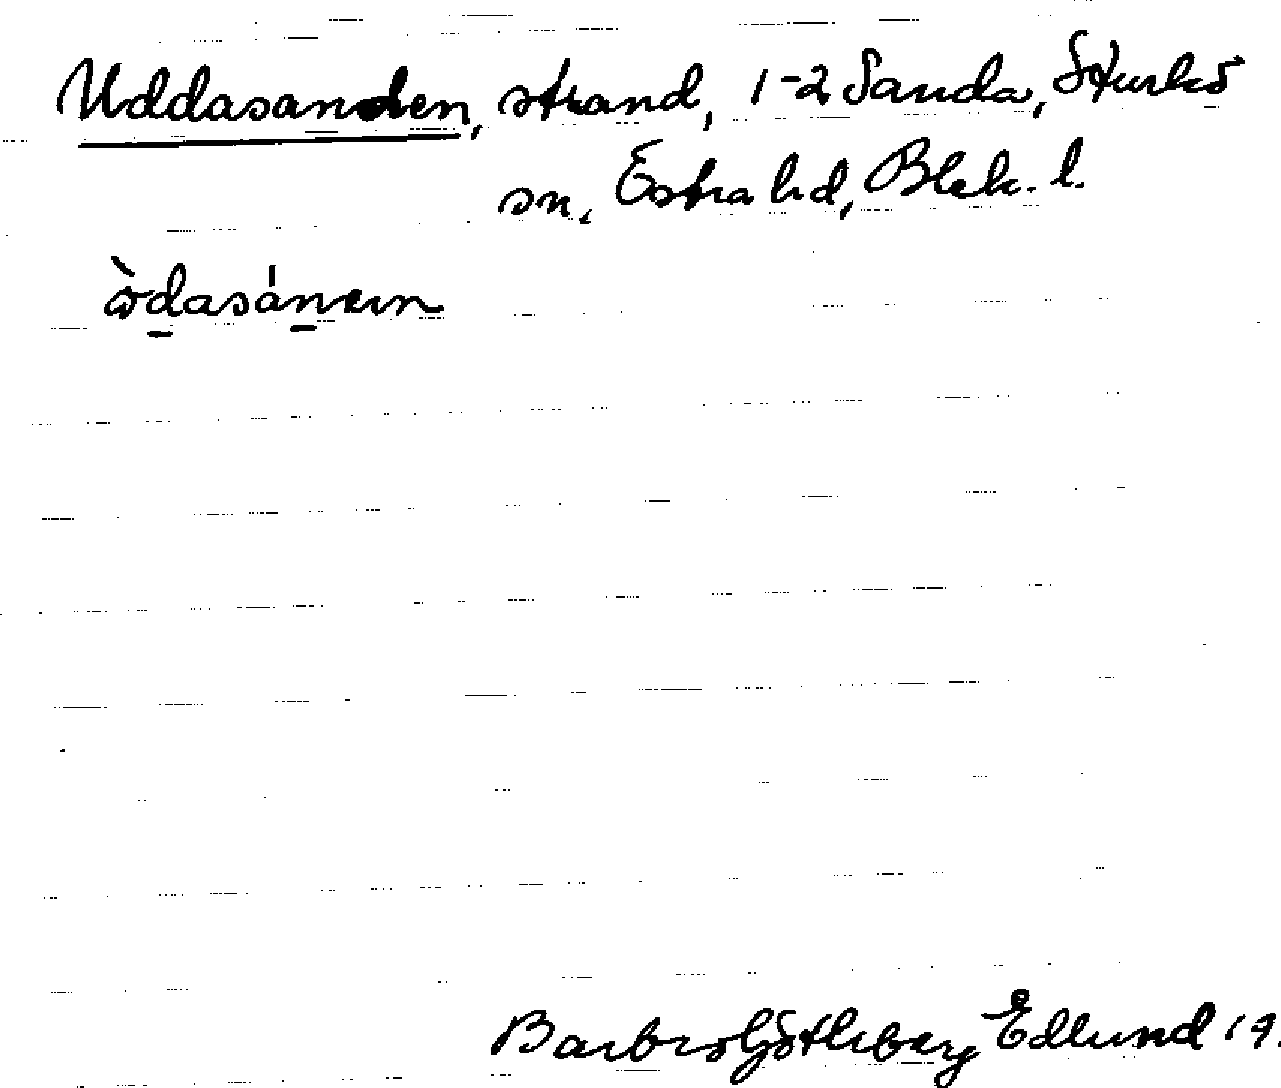 Uddasanden, strand, 1-2 Sanda, Sturkö
sn, Östra hd, Blek. l.
òdasánɐn
Barbro Götleberg Edlund 19